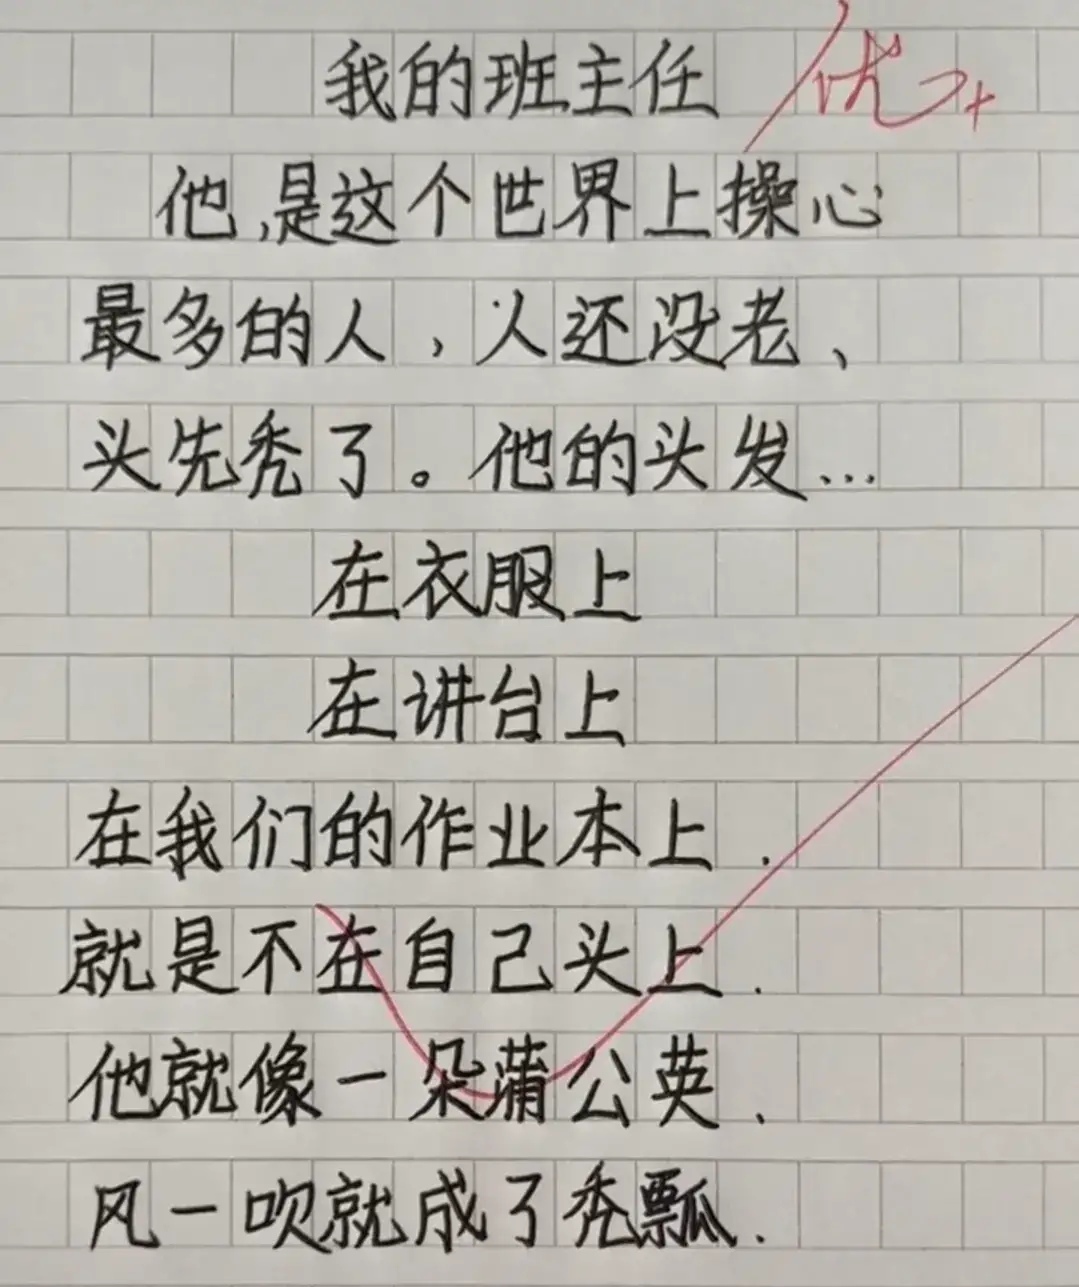 我的班主任 优+
他,是这个世界上操心
最多的人,人还没老、
头先秃了。他的头发...
在衣服上
在讲台上
在我们的作业本上.
就是不在自己头上.
他就像一朵蒲公英.
风一吹就成了秃瓢.